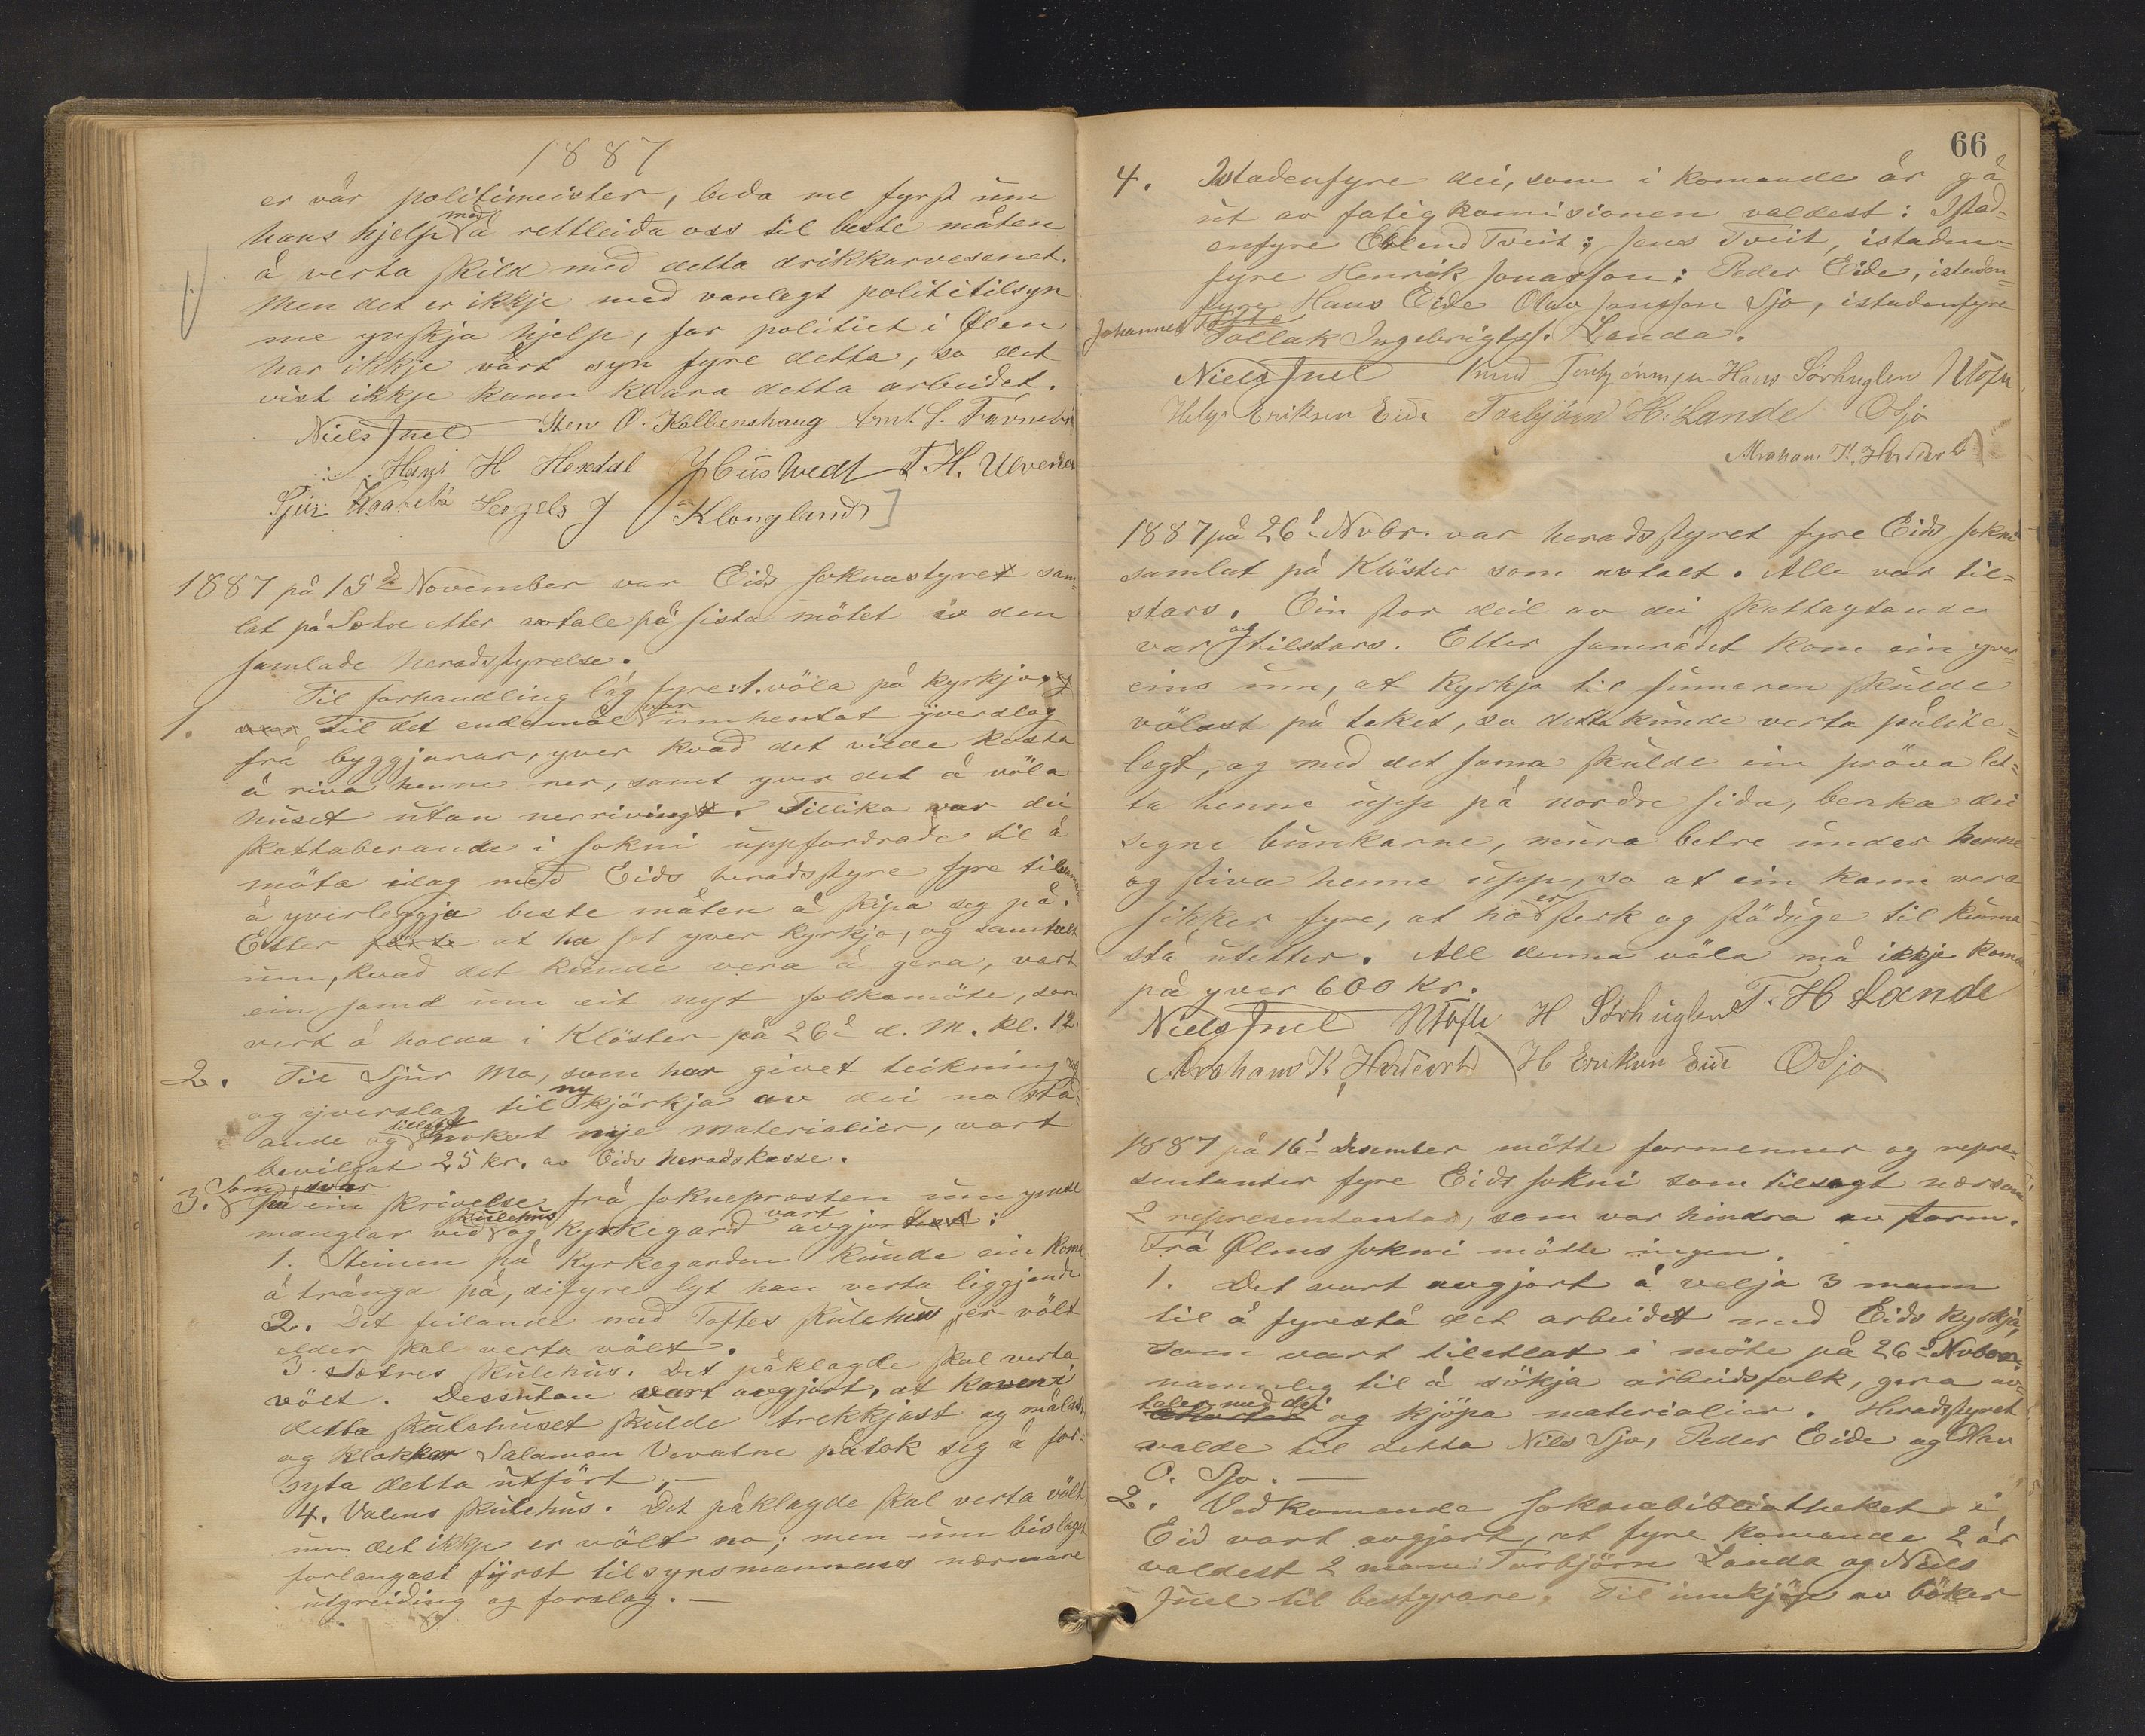 1887
er vår politimeister, beda me fyrst um
hans hjelp med å rettleida oss til beste måten
å verta skild med detta drikkarvesenet.
Men det er ikkje med vanlegt polititilsyn
me ynskja hjelp, for politiet i Ølen
har ikkje vårt syn fyre detta, so det
vist ikkje kann klåra detta arbeidet.
Niels Juel Sten O. Kolbenshaug
Hans H Hexdal J Huswedt T. H. Ulvenes
Klongland
1887 på 15d November var Eids soknastyret sam-
lat på Sætre etter avtale på sista mötet i den
samlade heradsstyrelse.
Til forhandling låg fyre: 1. völa på kyrkjo.
1. Til det endamål var innhentat yverslag
frå byggjarar, yver kvad det vilde kosta
å riva henne ner, samt yver det å völa
huset utan nerriving. Tillika var dei
skattaberande i sokni uppfordrade til å
möta idag med Eids heradsstyre fyre til
å yverleggja beste måten å skipa seg på.
Etter at ha set yver kyrkjo, og samtalt
um, kvad det kunde vera å gera, vart
ein samd um eit nyt folkamöte, som
verd å halda i Klöster på 26d d. M. kl. 12.
2. Til Sjur Mo, som har givet teikning og
og yverslag til ny kjörkja av dei no stå-
ande og tillagt noket nye materialier, vart
bevilgat 25 kr. av Eids heradskasse.
3. Som svar på ein skrivelse frå sokneprosten um ymse
manglar ved skulehus og kyrkegard vart avgjort:
1. Steinen på kyrkegarden kunde ein koma
å trånga på, difyre lyt han verta liggjande
2. Det feilande med Toftes skulehus er völt
elder skal verta völt.
3. Sætres skulehus. Det påklagde skal verta
völt. Dessutan vart avgjort, at kovent i
detta skulehuset skulde trekkjast og målas,
og klokkar Salamon Vevatne påtok seg å for-
syta detta utfört.-
4. Valens skulehus. Det påklagde skal verta völt
um det ikkje er völt no; men um bislaget
forlangast fyrst tilsynsmannens nærmare
utgreiding og forslag.-
66
4. Istadenfyre dei, som i komande år gå
ut av fatigkomisionen valdest: Istad-
enfyre Erlend Tveit; Jens Tveit, istaden-
fyre Henrik Jonasson: Peder Eide, istaden-
fyre Hans Eide Olav Jonsson Sjo, istadenfyre
Johannes Tollak Ingebrigtss. Landa.
Niels Juel Knud Hans Sörhuglen N Tofte
Helge Eriksen Eide Torbjörn H. Lande O Sjo
Abraham K.
1887 på 26d Nvbr. var heradsstyret fyre Eids sokn
samlat på Klöster som avtalt. Alle var til=
stars. Ein stor deil av dei skattaytande
var og tilstars. Etter samrådet kom ein yver=
eins um, at kyrkja til sumaren skulde
völast på taket, so detta kunde verta pålite=
legt, og med det sama skulde ein pröva let=
ta henne upp på nordre sida, benka dei
signe bunkarne, mura betre under henne
og stiva henne upp, so at ein kann vera
sikker fyre, at ho er sterk og stödug til kunna
stå utetter. All denna völa må ikkje koma
på yver 600 Kr.
Niels Juel N Tofte H Sörhuglen T. H Lande
Abraham K. H Eriksen Eide O Sjo
1887 på 16d Desember mötte formenner og repre-
sentanter fyre Eids sokni som tilsagt nærsom
2 representantar, som var hindra av storm.
Frå Ølens sokni mötte ingen.
1. Det vart avgjort å velja 3 mann
til å fyrestå det arbeidet med Eids kyrkja,
som vart tiletlat i möte på 26d Nvbr.
namnleg til å sökja arbeidsfolk, gera av-
taler med dei og kjöpa materialier. Heradsstyret
valde til detta Nils Sjo, Peder Eide og Olav
O. Sjo.-
2. Vedkomande soknabibliotheket i
Eid vart avgjort, at fyre komande 2 år
valdest 2 mann Torbjörn Landa og Niels
Juel til bestyrare. Til innkjöp av böker